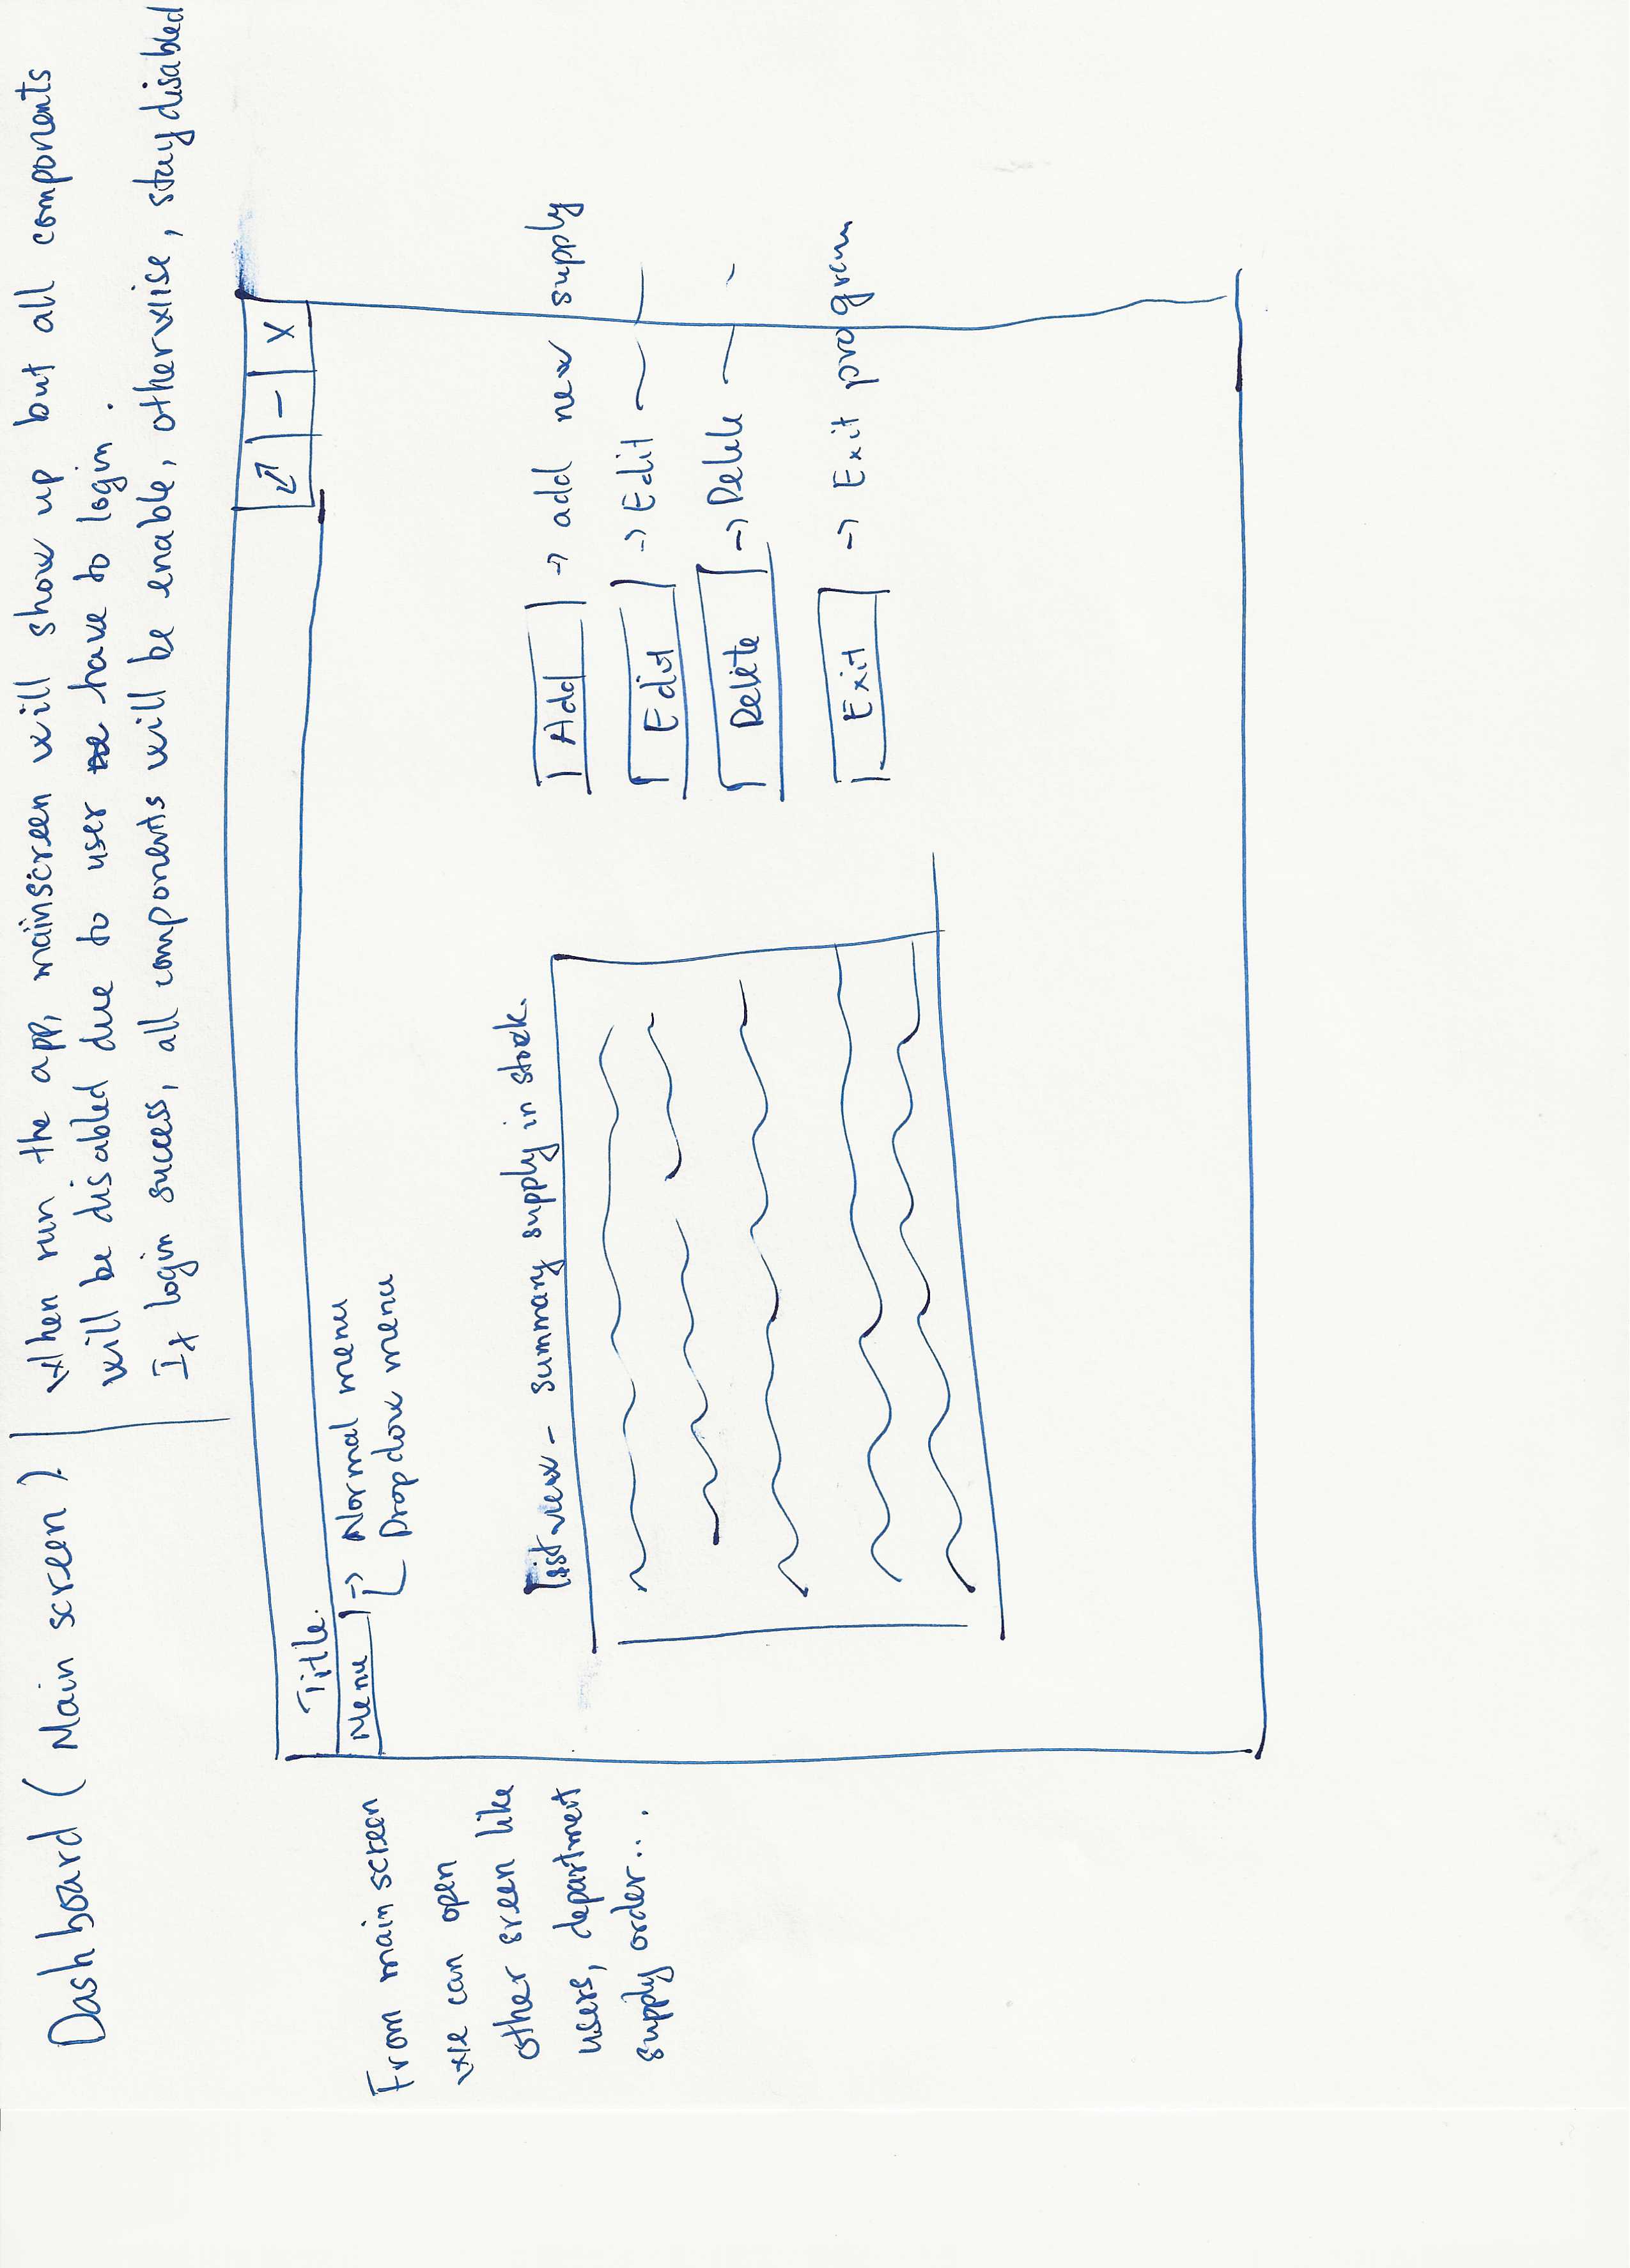 Dashboard (Main screen)
When run the app, mainscreen will show up but all components
will be disabled due to user have to login.
If login success, all components will be enable, otherwise, stay disabled
Title.
Menu -> Normal menu
Dropdow menu
From main screen
we can open
other sreen like
users, department
supply order...
listview - summary supply in stock.
Add -> add new supply
Edit -> Edit
Delete -> Delete
Exit -> Exit program
X